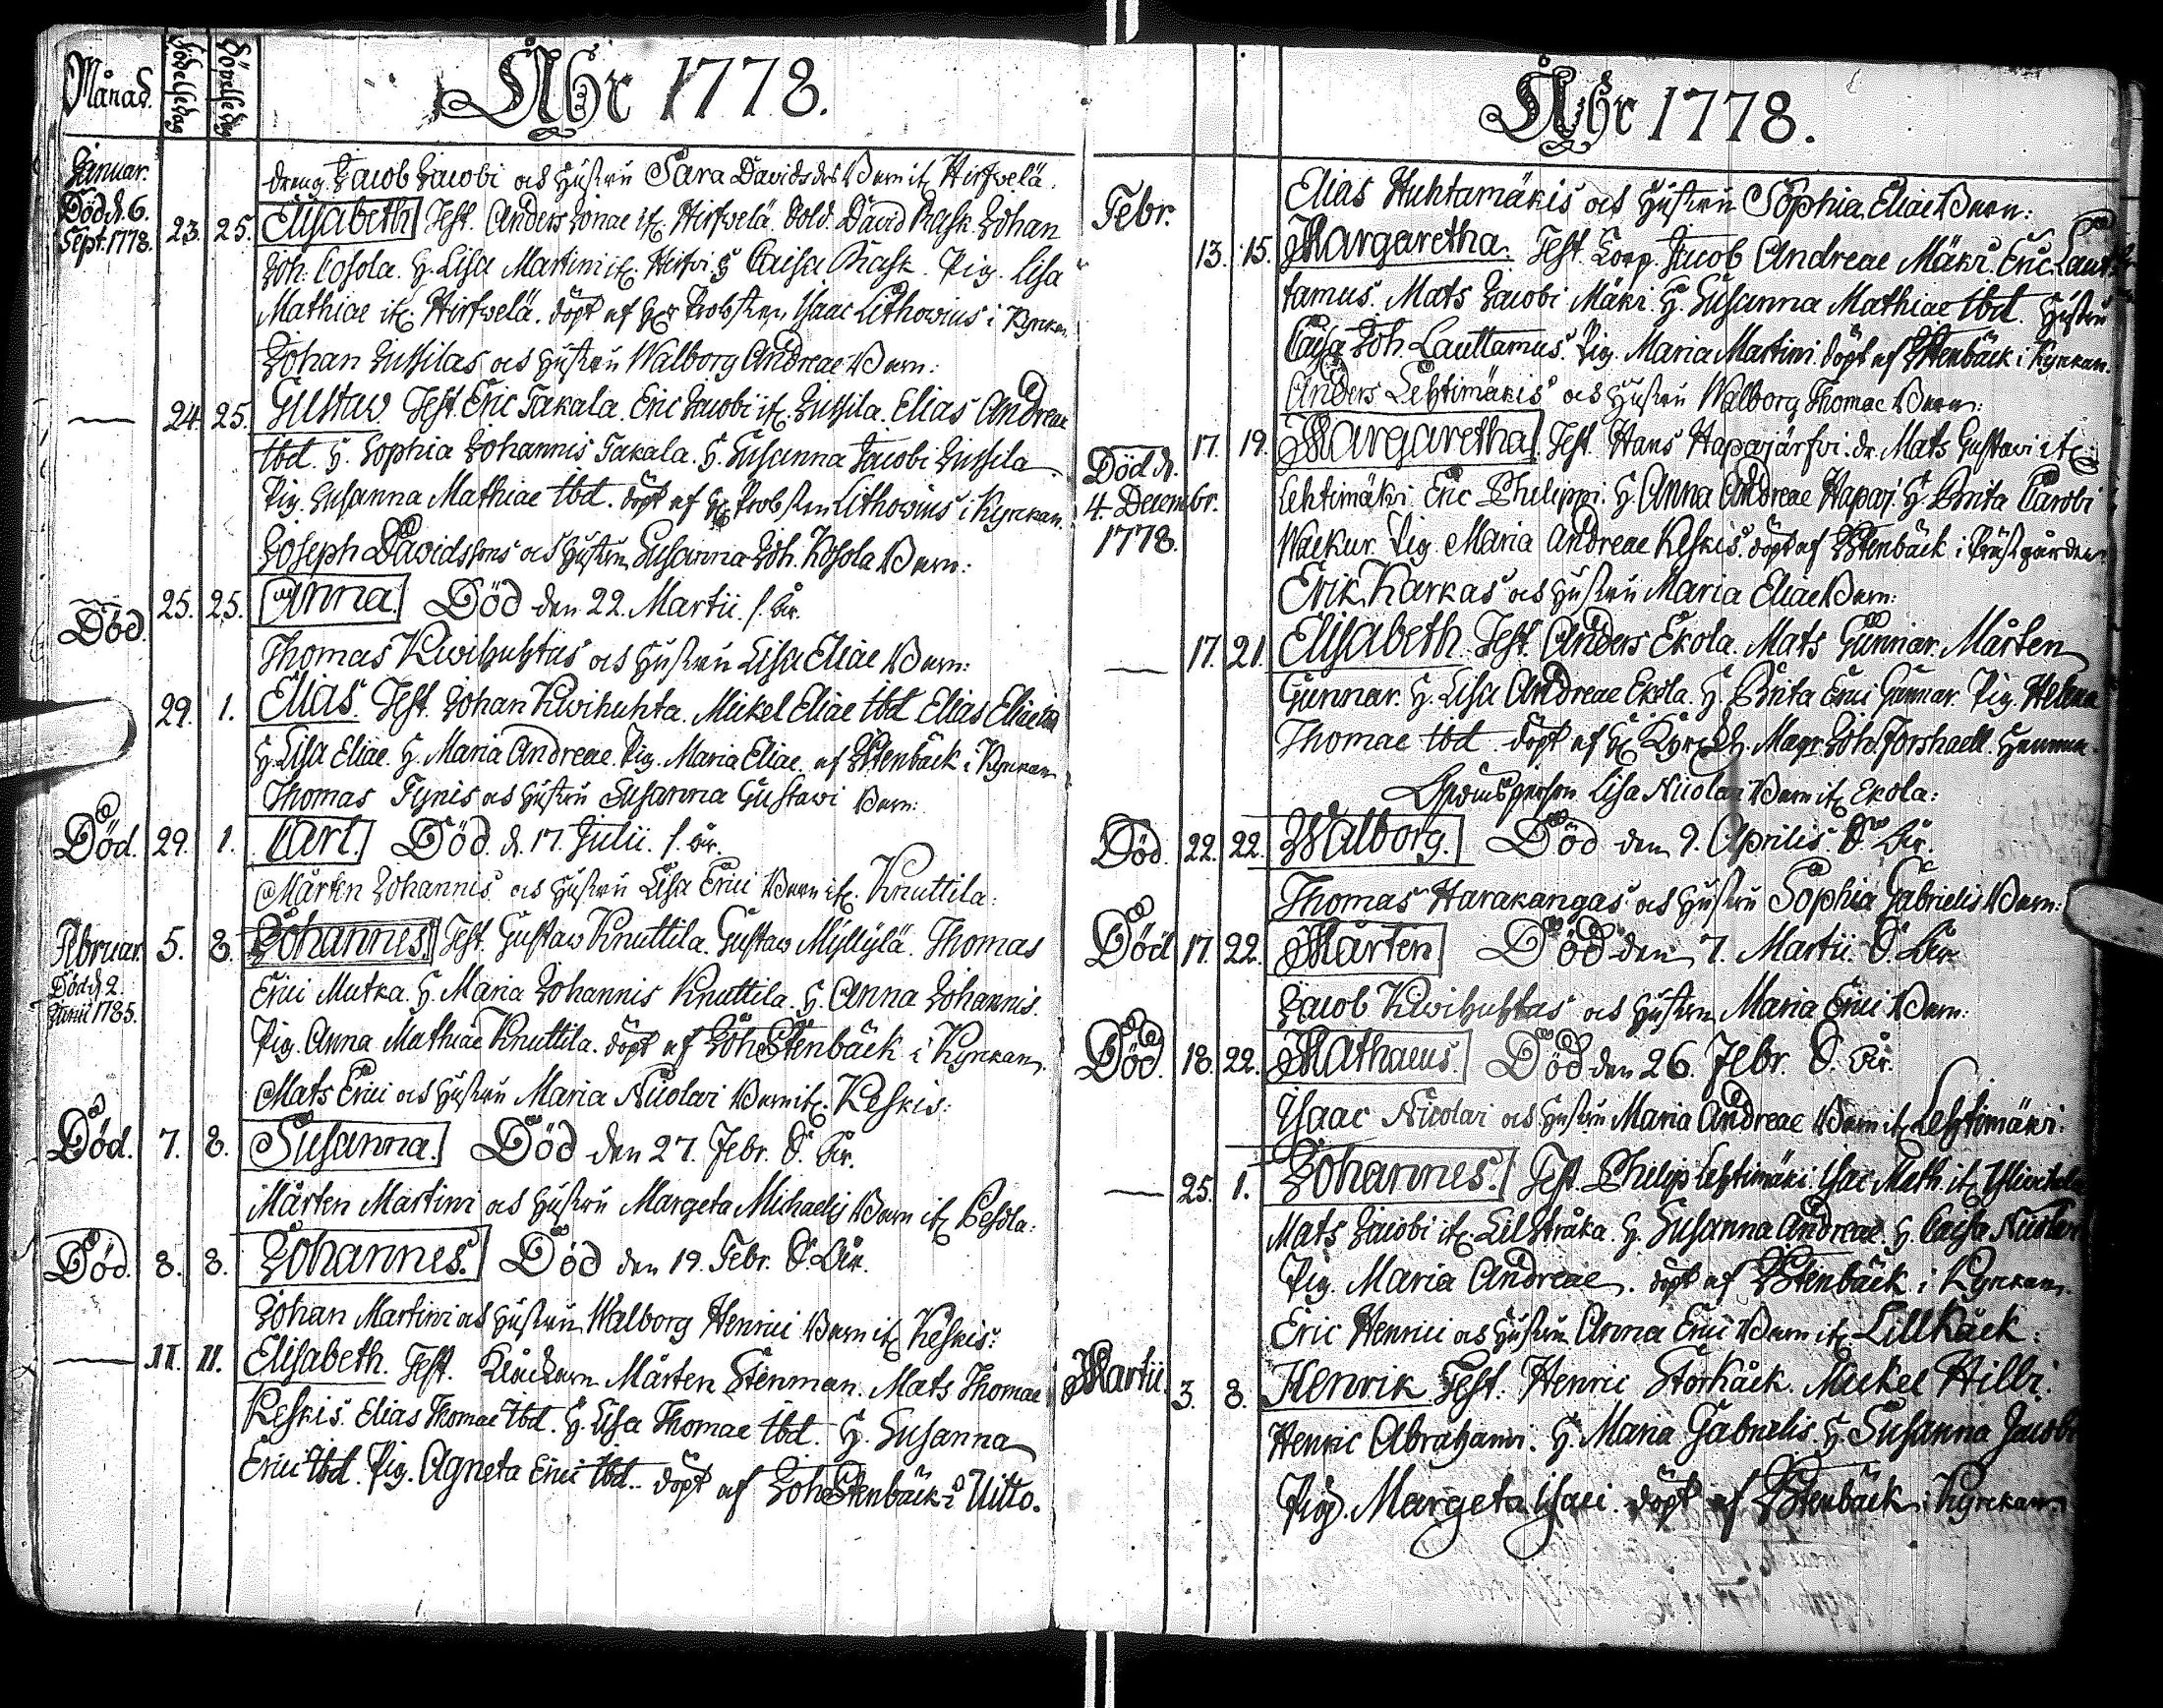 Månad.
Födelse dag
Döpelse dag
Åhr 1778.
Januar.
dreng. Jacob Jacobi och hustru Sara Davidsdr Barn it. Hirfvelä.
Död d. 6. Sept. 1778.
23. 25. Elisabeth Test. Anders Jonae it. Hirfvelä. Sold. David Rask. Johan
Joh. Cosola. H. Lisa Martini it. Hirfvi. H Caisa Rask. Pig. Lisa
Mathiae it. Hirfvelä. döpt af Hr Probsten Isaac Lithovius i Kyrkan.
Johan Jussilas och hustru Walborg Andreae Barn:
24. 25. Gustaw. Test. Eric Takala. Eric Jacobi it. Jussila. Elias Andreae
ibd. H. Sophia Johannis Takala. H. Susanna Jacobi Jussila
Pig. Susanna Mathiae ibd. döpt af Hr Probsten Lithovius i Kyrckan.
Joseph Davidsons och hustru Susanna Joh. Kosola Barn:
Död. 25. 25. Anna. Död den 22. Martii. s. år.
Thomas Kivihuhtas och hustru Lisa Eliae Barn:
29. 1. Elias. Test. Johan Kivihuhta. Mickel Eliae ibd Elias Eliae ibd
H. Lisa Eliae. H. Maria Andreae. Pig. Maria Eliae. af JStenbäck i Kyrckan
Thomas Fynis och hustru Susanna Gustawi Barn:
Död. 29. 1. Carl. Död. d. 17. Julii. s. år.
Mårten Johannis och hustru Lisa Erici Barn it. Knuttila:
Februar. 5. 8. Johannes. Test. Gustaw Knuttila. Gustaw Myllylä. Thomas
Död d 2. Junii 1785.
Erici Mutka. H. Maria Johannis Knuttila. H. Anna Johannis.
Pig. Anna Mathiae Knuttila. döpt af Joh Stenbäck i Kyrckan.
Mats Erici och hustru Maria Nicolai Barn it. Keskis:
Död. 7. 8. Susanna. Död den 27. Febr. S. År.
Mårten Martini och hustru Margeta Michaelis Barn it Pesola:
Död. 8. 8. Johannes. Död den 19. Febr. S. År.
Johan Martini och hustru Walborg Henrici Barn it Keskis:
11. 11. Elisabeth. Test. Klåckarn Mårten Stenman. Mats Thomae
Keskis. Elias Thomae ibd. H. Lisa Thomae ibd. H. Susanna
Erici ibd. Pig. Agneta Erici ibd. döpt af Joh Stenbäck i Uitto.
Åhr 1778.
Febr.
Elias Huhtamäkis och hustru Sophia Eliae Barn:
13. 15. Margaretha. Test. Corp. Jacob Andreae Mäki. Eric Laut
tamus. Mats Jacobi Mäki. H. Susanna Mathiae ibd. hustru
Caisa Joh. Lauttamus. Pig. Maria Martini. döpt af JStenbäck i Kyrckan.
Anders Lehtimäkis och hustru Walborg Thomae Barn:
Död d. 4. Decembr. 1778.
17. 19. Margaretha. Test. Hans Hapajärfvi. dr. Mats Gustavi it.
Lehtimäki. Eric Philippi. H. Anna Andreae Hapaj. H. Brita Carobi
Wackur. Pig. Maria Andreae Keskis. döpt af JStenbäck i Prästgården
Erik Karkas och hustru Maria Eliae Barn:
17. 21. Elisabeth. Test. Anders Ekola. Mats Gunnar. Mårten
Gunnar. H. Lisa Andreae Ekola. H. Brita Erici Gunnar. Pig. Helena
Thomae ibd. döpt af H. Magr Joh. Forshaell. hemma
Lisa Nicolai Barn it Ekola:
Död. 22. 22. Walborg. Död den 9. Aprilis. S. År.
Thomas Harakangas och hustru Sophia Gabrielis Barn:
Död 17. 22. Mårten Död den 7. Martii. S. År
Jacob Kivihuhtas och hustru Maria Erici Barn:
Död. 18. 22. Mathaeus. Död den 26. Febr. S. År.
Isaac Nicolai och hustru Maria Andreae Barn it Lehtimäki:
25. 1. Johannes. Test. Philip Lehtimäki. Isac Math. it
Mats Jacobi it. Lilstråka. H. Susanna Andreae. H Caisa Nicolai
Pig. Maria Andreae. döpt af JStenbäck i Kyrckan.
Eric Henrici och hustru Anna Erici Barn it Lillkåck:
Martii. 3. 8. Henrik Test: Henric Storkåck. Mickel Hilli.
Henric Abrahami. H. Maria Gabrielis. H. Susanna Jacobi
Pig. Margeta Isaci. döpt af JStenbäck i Kyrckan.